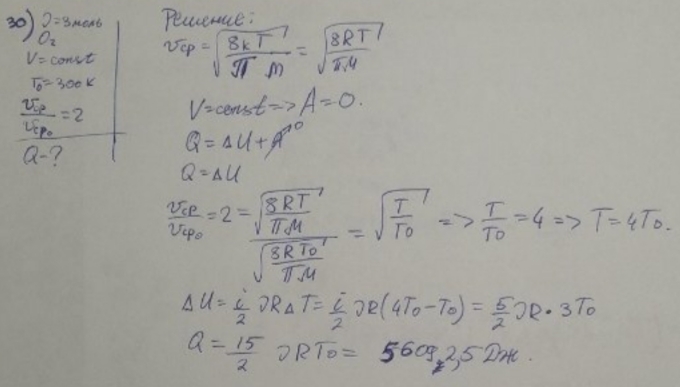 30) ν=3моль
O₂
V=const
T₀=300K
υср/υср₀=2
Q-?
Решение:
υср=√(8kT/πm)=√(8RT/πM)
V=const=>A=0.
Q=ΔU+A⁰
Q=ΔU
υср/υср₀=2=√(8RT/πM)/√(8RT₀/πM)=√(T/T₀)=>T/T₀=4=>T=4T₀.
ΔU=i/2 νRΔT=i/2 νR(4T₀-T₀)=5/2 νR·3T₀
Q=15/2 νRT₀=56092,5 Дж.